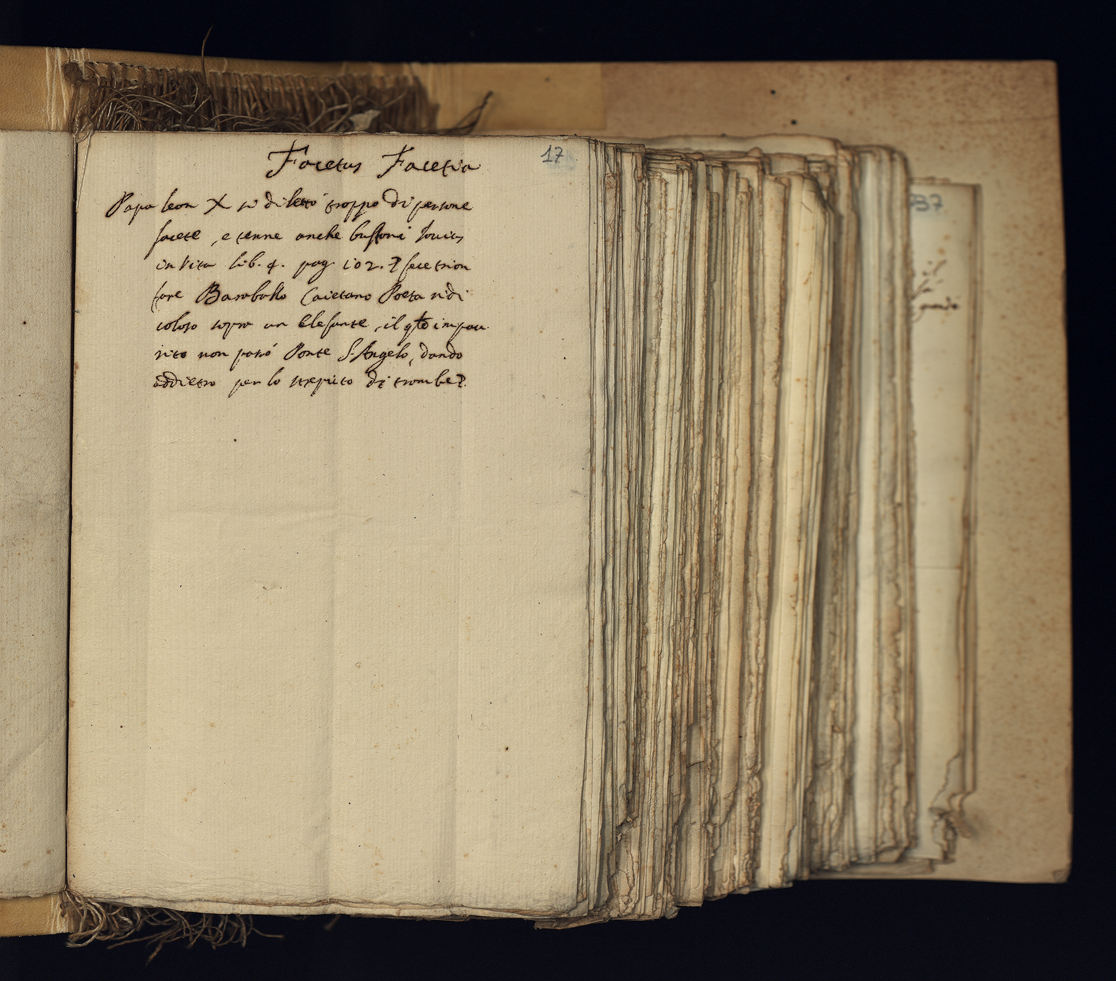 Facetus Facetia
17
Papa leon X si dilettò troppo di persone
facete, e tenne anche buffoni Jovius
in Vita lib. 4. pag. 102. fece trion
fare Baraballo Caietano Poeta ridi
coloso sopra un Elefante, il qte impau
rito non passò Ponte S. Angelo, dando
addietro per lo strepito di trombe.
37